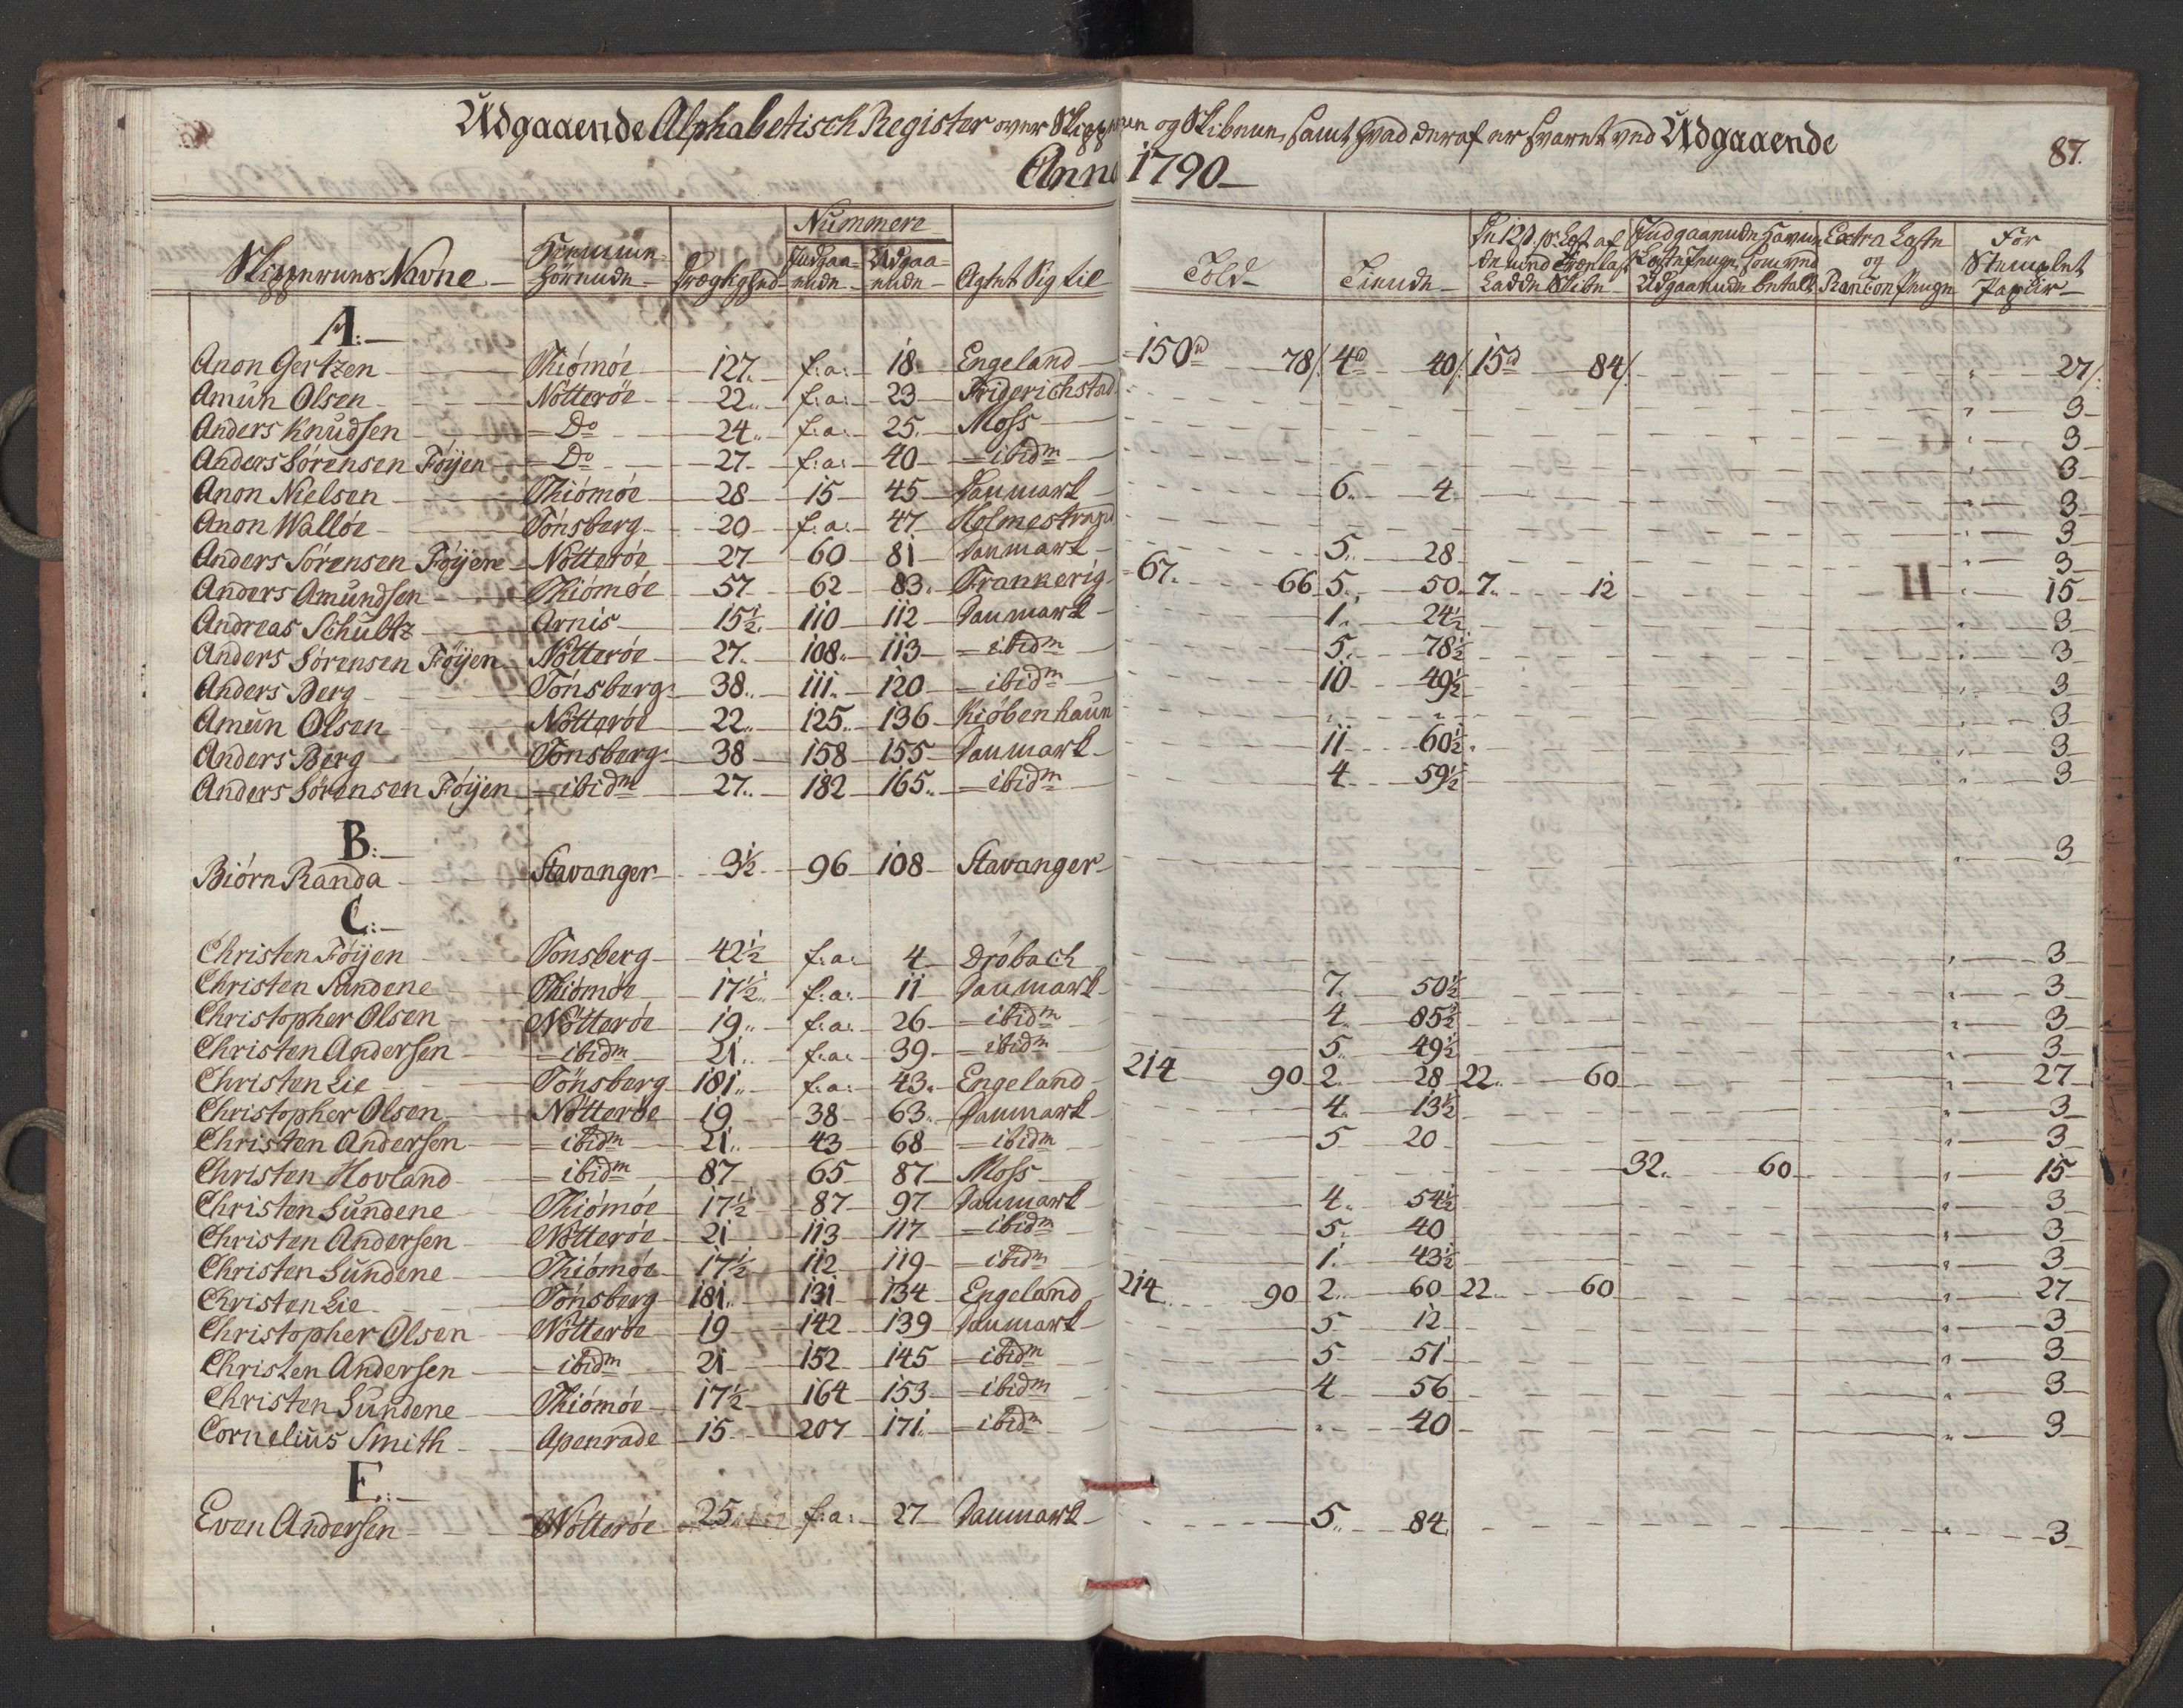 Udgaaende Alphabetisch Register over Skipperne og Skibene, samt hvad deraf er svaret ved Udgaaende
87.
Anno 1790
Skippernes Navne Hiemme-hörende Drægtighed Nummere Indgaa-ende Udgaa-ende Agtet Sig til Told Tiende De 12 s. pr. Læst af de med Trælast Ladde Skibe Indgaaende Havne Lastepenge, som ved Udgaaende betalt Extra Laste og Rancon Penge For Stemplet Papiir
A:
Anon Gertzen Thiömöe 127. f:a: 18. Engeland 150 rd 78 s. 4 rd 40 s. 15 rd 84 s. 27 s.
Amun Olsen Nötteröe 22.. f:a: 23 Friderichstad 3
Anders Knudsen Do 24.. f:a: 25. Moss 3
Anders Sörensen Föyen Do 27 f:a: 40 ibidm 3
Anon Nielsen Thiömöe 28 15 45 Danmark 6. 4 3
Anon Wallöe Tönsberg 20 f:a: 47 Holmestrand 3
Anders Sörensen Föyen Nötteröe 27 60 81 Danmark 5.. 28 3
Anders Amundsen Thiömöe 57 62 83. Frankerig 67. 66 5.. 50 7.. 12 15
Andreas Schultz Arnis 15½. 110 112 Danmark 1.. 24½ 3
Anders Sörensen Föyen Nötteröe 27. 108. 113 ibidm 5. 78½ 3
Anders Berg Tönsberg 38.. 111. 120 ibidm 10 49½ 3
Amun Olsen Nötteröe 22.. 125.. 136 Kiöbenhaun 3
Anders Berg Tönsberg 38 158 155 Danmark 11 60½. 3
Anders Sörensen Föyen ibidm 27.. 182 165.. ibidm 4 59½ 3
B:
Biörn Randa Stavanger 3½ 96 108 Stavanger 3
C:
Christen Föyen Tönsberg 42½ f:a: 4 Dröbach 3
Christen Sundene Thiömöe 17½.. f:a: 11 Danmark 7. 50½ 3
Christopher Olsen Nötteröe 19.. f:a: 26 ibidm 4.. 85½ 3
Christen Andersen ibidm 21.. f:a: 39 ibidm 5.. 49½ 3
Christen Lie Tönsberg 181.. f:a: 43. Engeland 214 90 2.. 28 22.. 60 27
Christopher Olsen Nötteröe 19 38 63. Danmark 4.. 13½ 3
Christen Andersen ibidm 21.. 43 68 ibidm 5 20 3
Christen Hovland ibidm 87 65 87 Moss 32.. 60 15
Christen Sundene Thiömöe 17½ 87 97 Danmark 4.. 54½ 3
Christen Andersen Nötteröe 21 113 117 ibidm 5. 40 3
Christen Sundene Thiömöe 17½ 112 119 ibidm 1. 43½ 3
Christen Lie Tönsberg 181.. 131 134 Engeland 214 90 2.. 60 22.. 60 27
Christopher Olsen Nötteröe 19 142 139 Danmark 5 12 3
Christen Andersen ibidm 21 152 145 ibidm 5 51 3
Christen Sundene Thiömöe 17½ 164 153 ibidm 4 56 3
Cornelius Smith Apenrade 15 207 171. ibidm 40 3
E:
Even Andersen Nötteröe 25 f:a: 27 Danmark 5.. 84 3